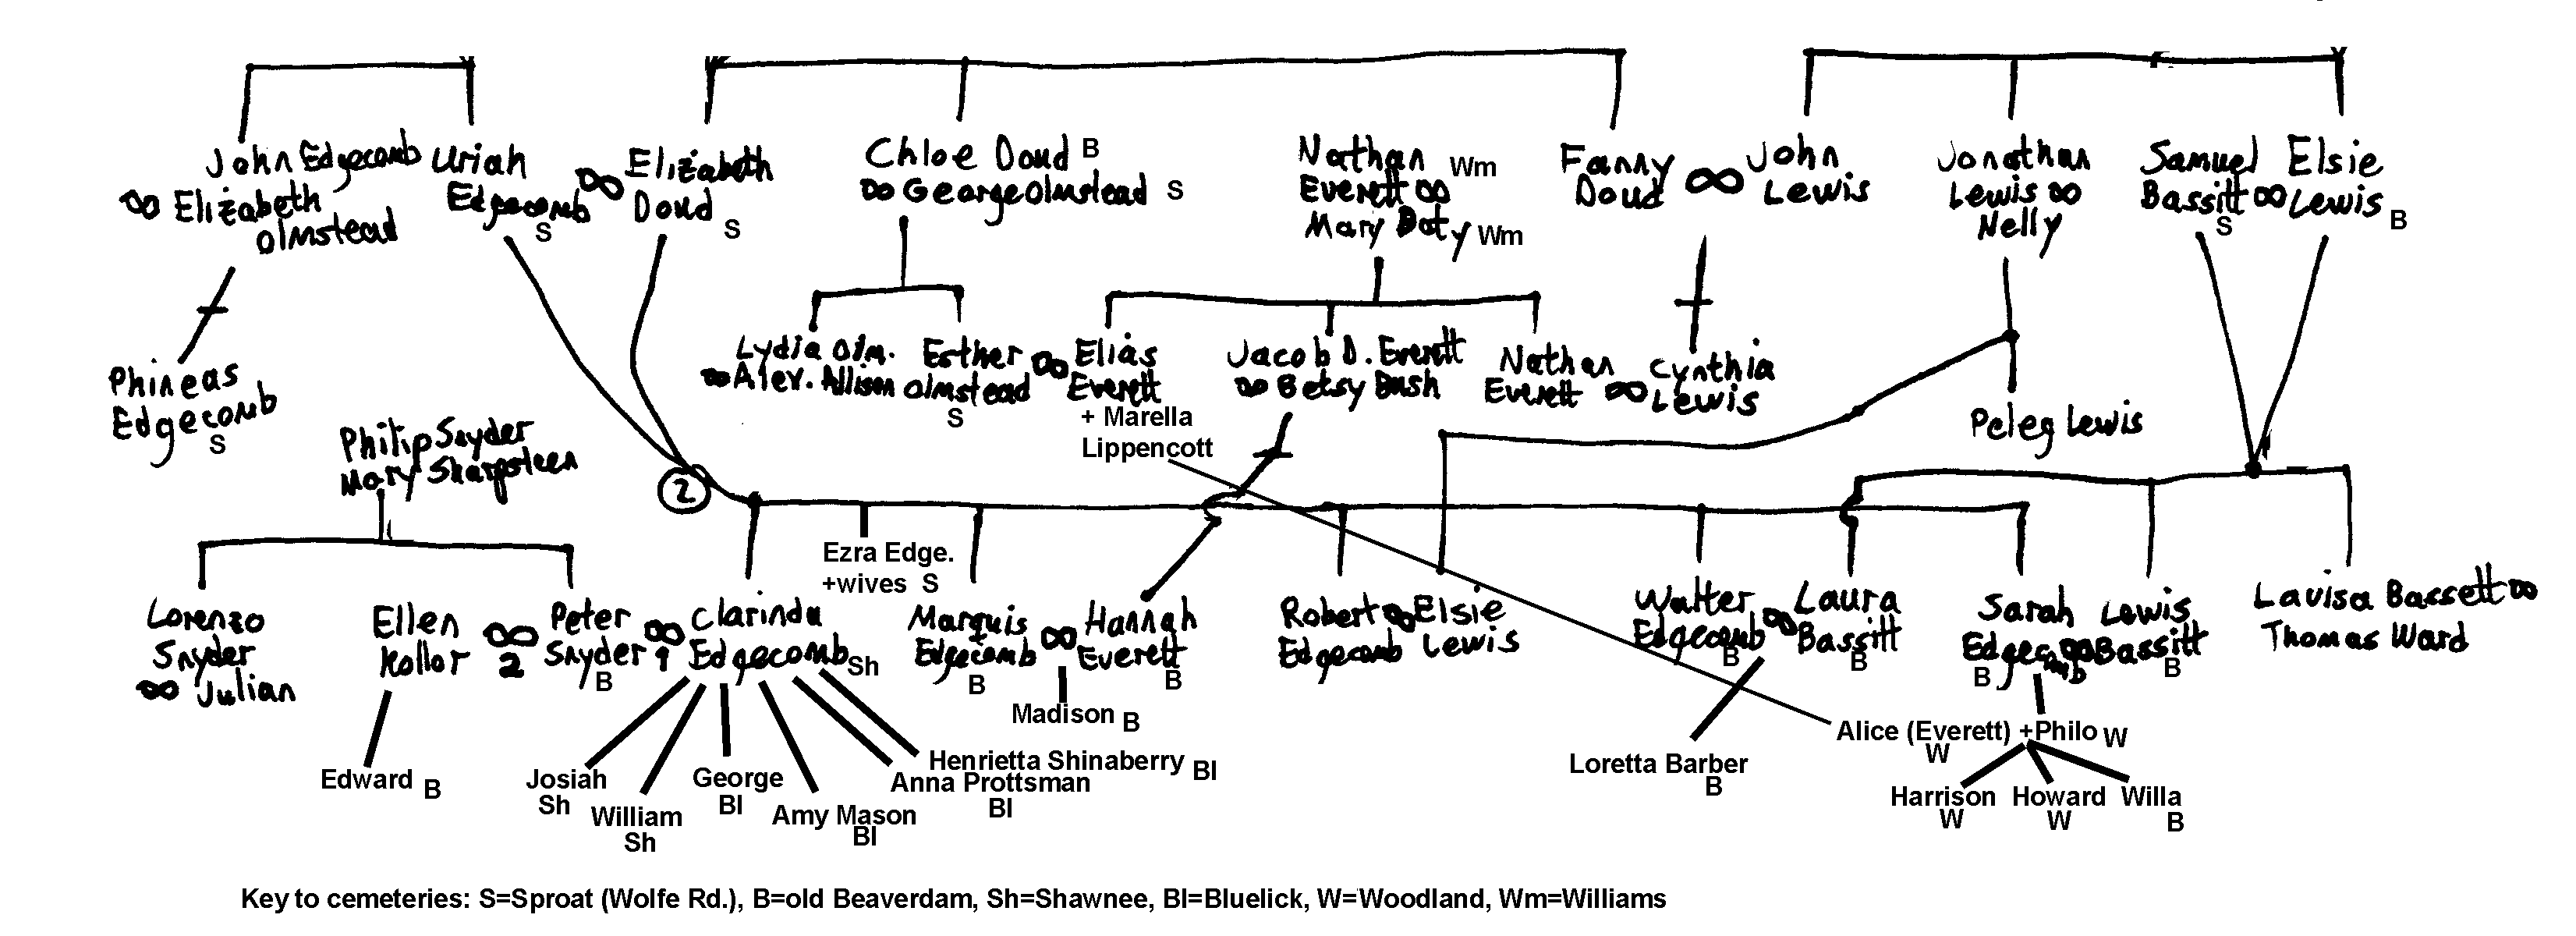 John Edgecomb
∞ Elizabeth
Olmstead
Uriah
Edgecomb
S
∞
Elizabeth
Doud
S
Chloe Doud B
∞ George Olmstead S
Nathan Wm
Everett ∞
Mary Doty Wm
Fanny
Doud
∞
John
Lewis
Jonathan
Lewis ∞
Nelly
Samuel
Bassitt ∞
S
Elsie
Lewis B
Phineas
Edgecomb
S
Lydia Olm.
∞ Alex. Allison
Esther
Olmstead
S
∞
Elias
Everett
+ Marella
Lippencott
Jacob D. Everett
∞ Betsy Bush
Nathan
Everett
∞
Cynthia
Lewis
Peleg Lewis
Philip Snyder
Mary Sharpsteen
2
Lorenzo
Snyder
∞ Julian
Ellen
Kollor
∞
2
Peter
Snyder
B
∞
1
Clarinda
Edgecomb Sh
Ezra Edge.
+wives S
Marquis
Edgecomb
B
∞
Hannah
Everett
B
Robert
Edgecomb
∞
Elsie
Lewis
Walter
Edgecomb
B
∞
Laura
Bassitt
B
Sarah
Edgecomb
B
∞
Lewis
Bassitt
B
Lavisa Bassett ∞
Thomas Ward
Madison B
Edward B
Josiah
Sh
William
Sh
George
Bl
Amy Mason
Bl
Anna Prottsman
Bl
Henrietta Shinaberry Bl
Loretta Barber
B
Alice (Everett) +Philo W
W
Harrison
W
Howard
W
Willa
B
Key to cemeteries: S=Sproat (Wolfe Rd.), B=old Beaverdam, Sh=Shawnee, Bl=Bluelick, W=Woodland, Wm=Williams